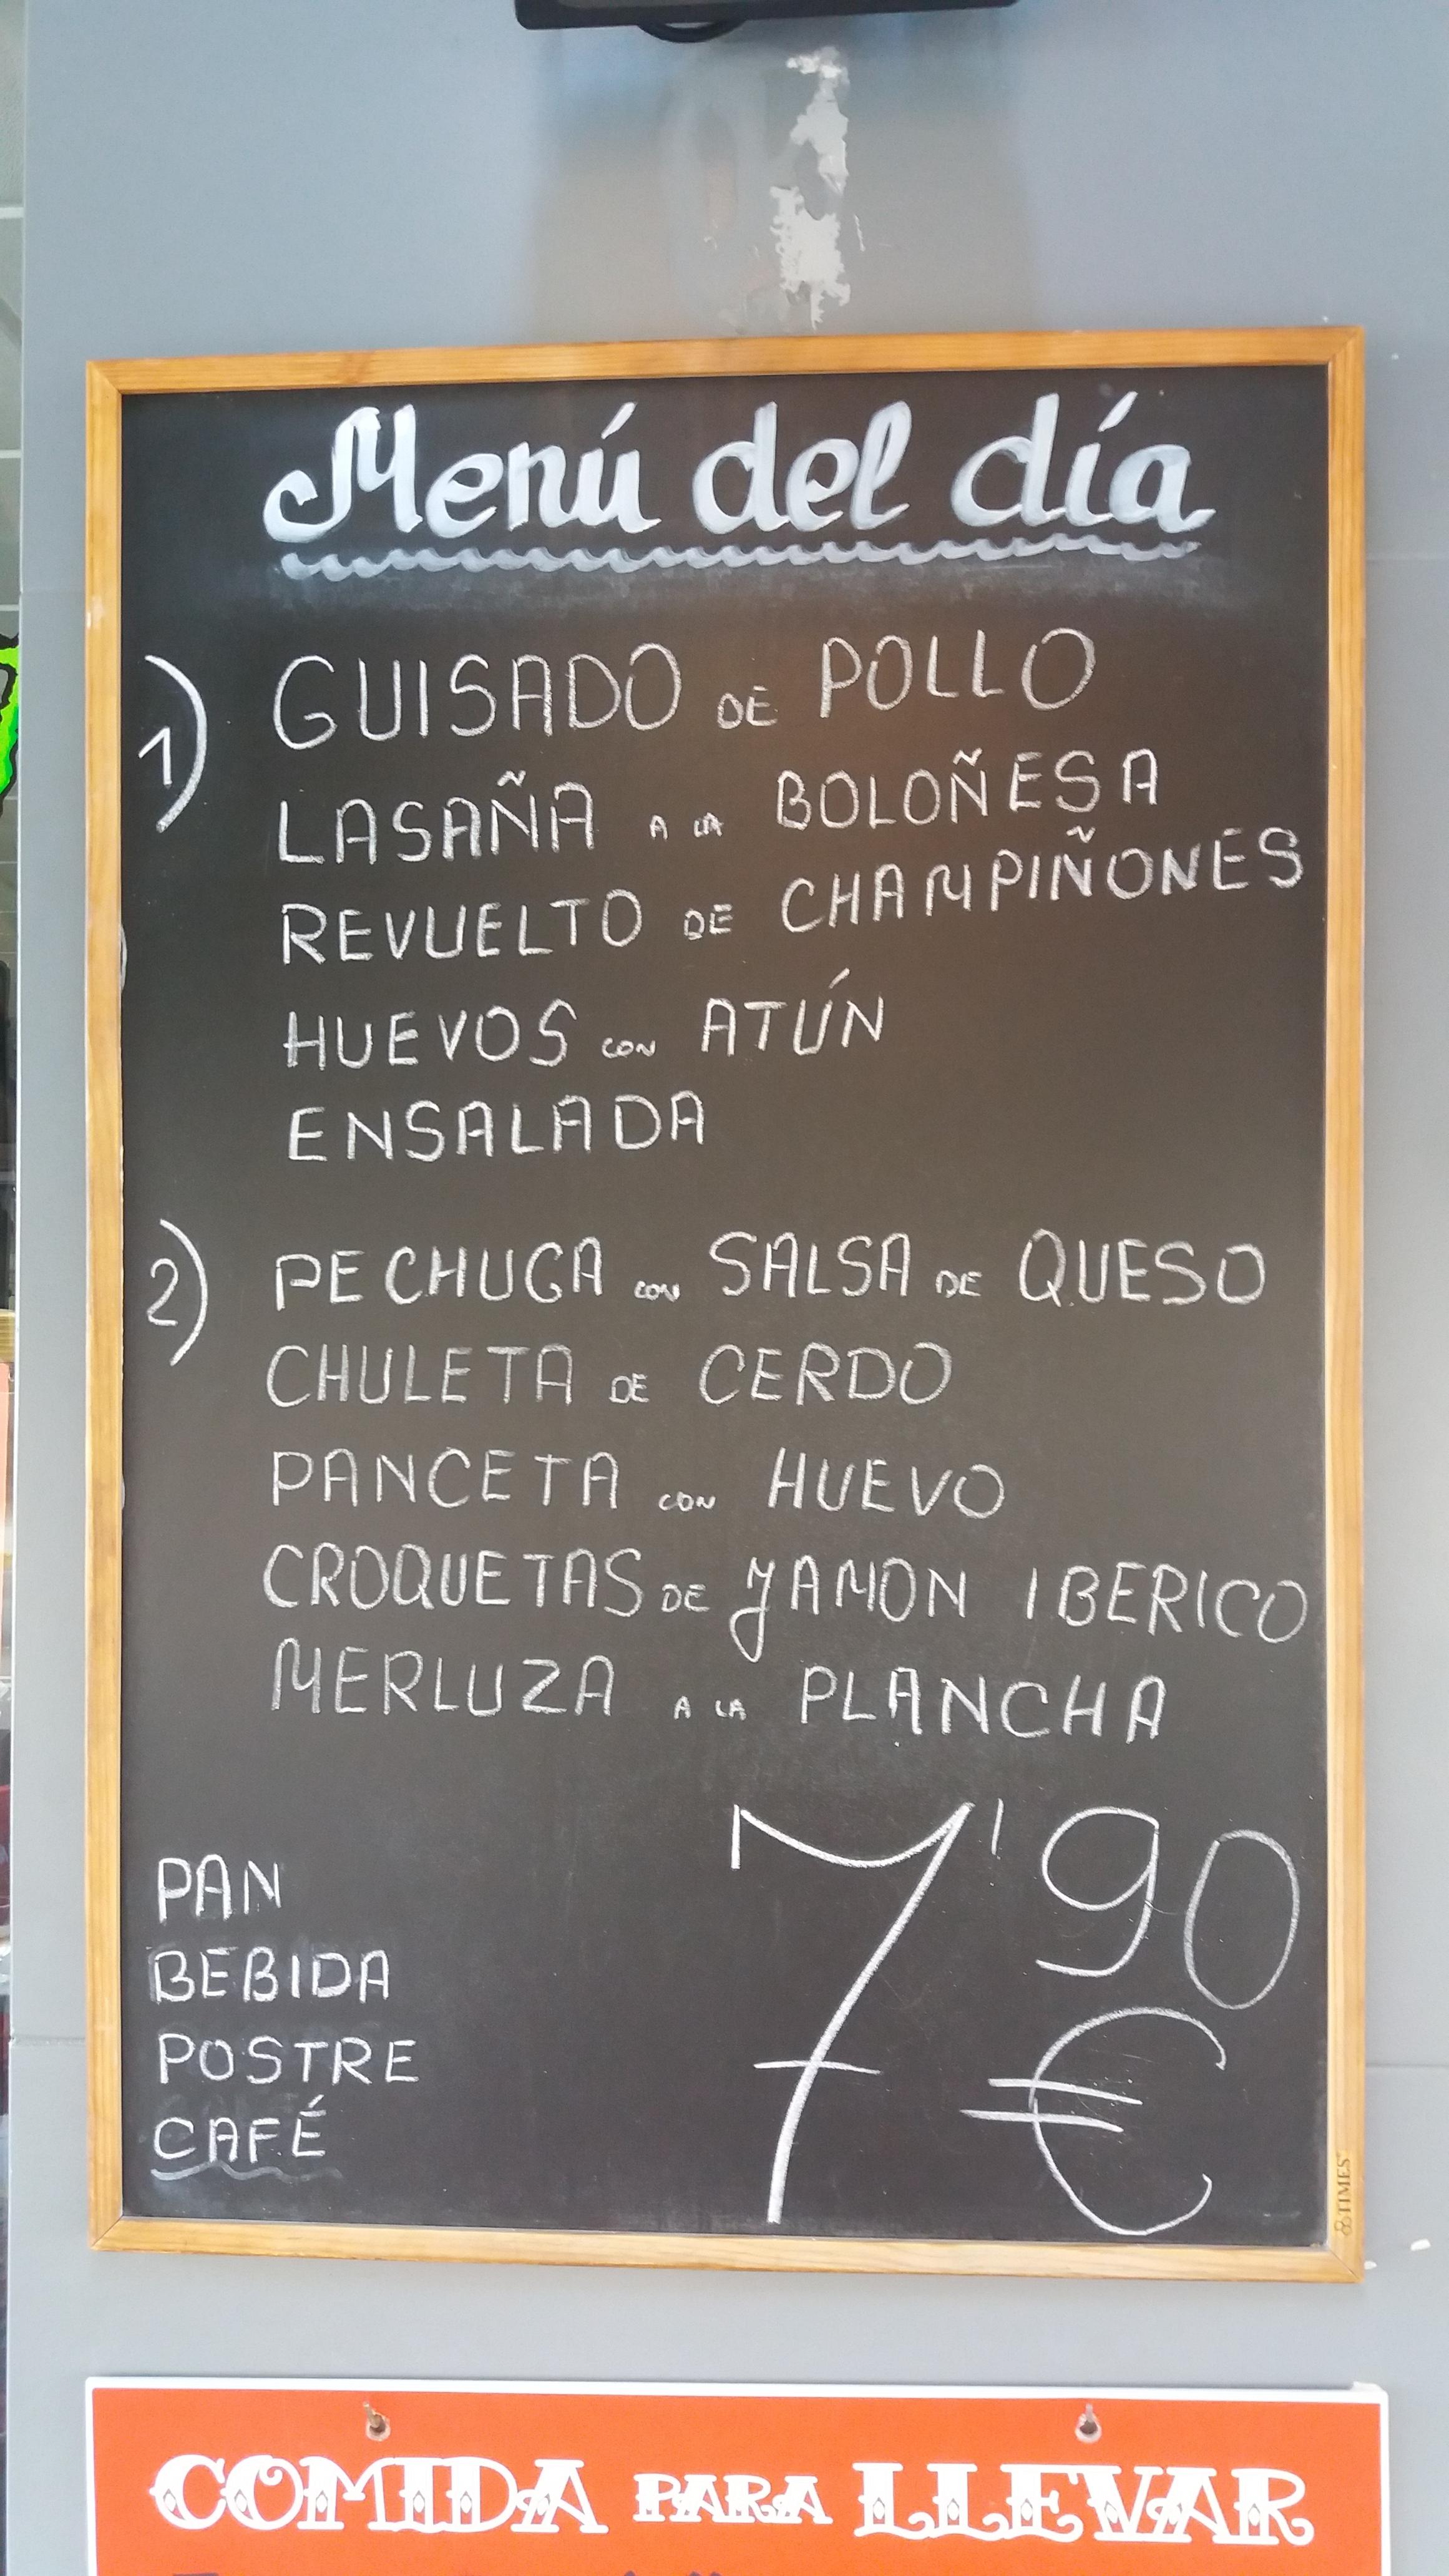 Menú del día
1) GUISADO DE POLLO
LASAÑA A LA BOLOÑESA
REVUELTO DE CHAMPIÑONES
HUEVOS CON ATÚN
ENSALADA
2) PECHUGA CON SALSA DE QUESO
CHULETA DE CERDO
PANCETA CON HUEVO
CROQUETAS DE JAMON IBERICO
MERLUZA A LA PLANCHA
PAN
BEBIDA
POSTRE
CAFÉ
7'90
€
TIMES
COMIDA PARA LLEVAR